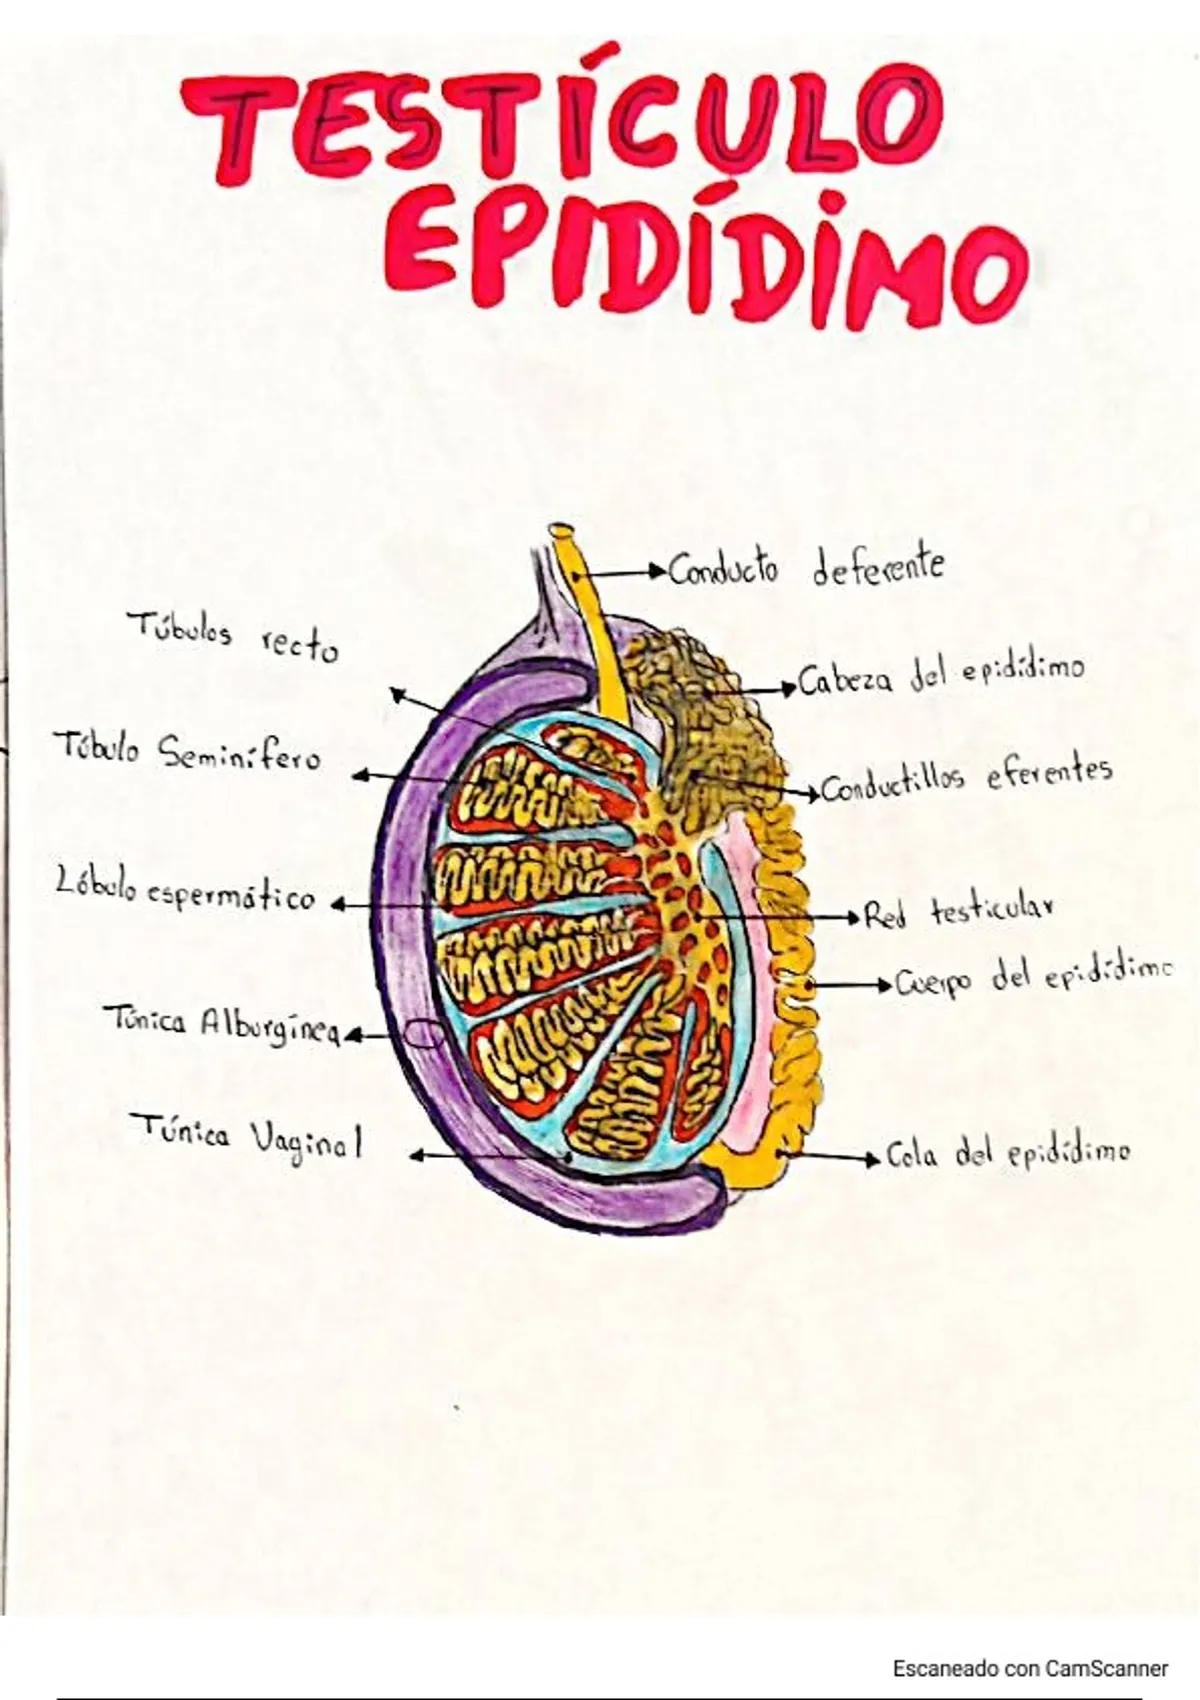 TESTÍCULO
EPIDÍDIMO
Conducto deferente
Túbulos recto
Cabeza del epidídimo
Túbulo Seminífero
Conductillos eferentes
Lóbulo espermático
Red testicular
Cuerpo del epidídimo
Túnica Alburgínea
Túnica Vaginal
Cola del epidídimo
Escaneado con CamScanner